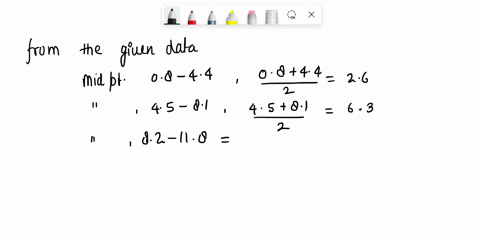 from the given data
mid pt. 0.8-4.4 , 0.8+4.4/2 = 2.6
" , 4.5-8.1 , 4.5+8.1/2 = 6.3
" , 8.2-11.8 =